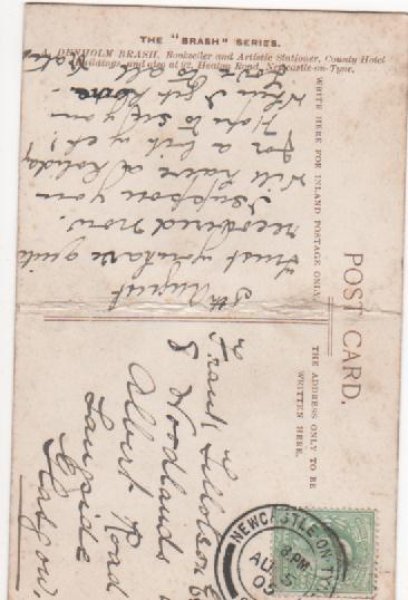 THE "BRASH" SERIES.
A. DENHOLM BRASH, Bookseller and Artistic Stationer, County Hotel
Buildings, and also at 92, Heaton Road, Newcastle-on-Tyne.
POST CARD.
WRITE HERE FOR INLAND POSTAGE ONLY.
THE ADDRESS ONLY TO BE
WRITTEN HERE.
5th August
Trust you have quite
recovered now.
I suppose you
will have a holiday
for a bit yet!
Hope to see you
when I get home.
Love to all
Frank Tillotson
8 Woodlands
Albert Road
Langside
Glasgow.
NEWCASTLE ON TY
8 PM
AU 5
05